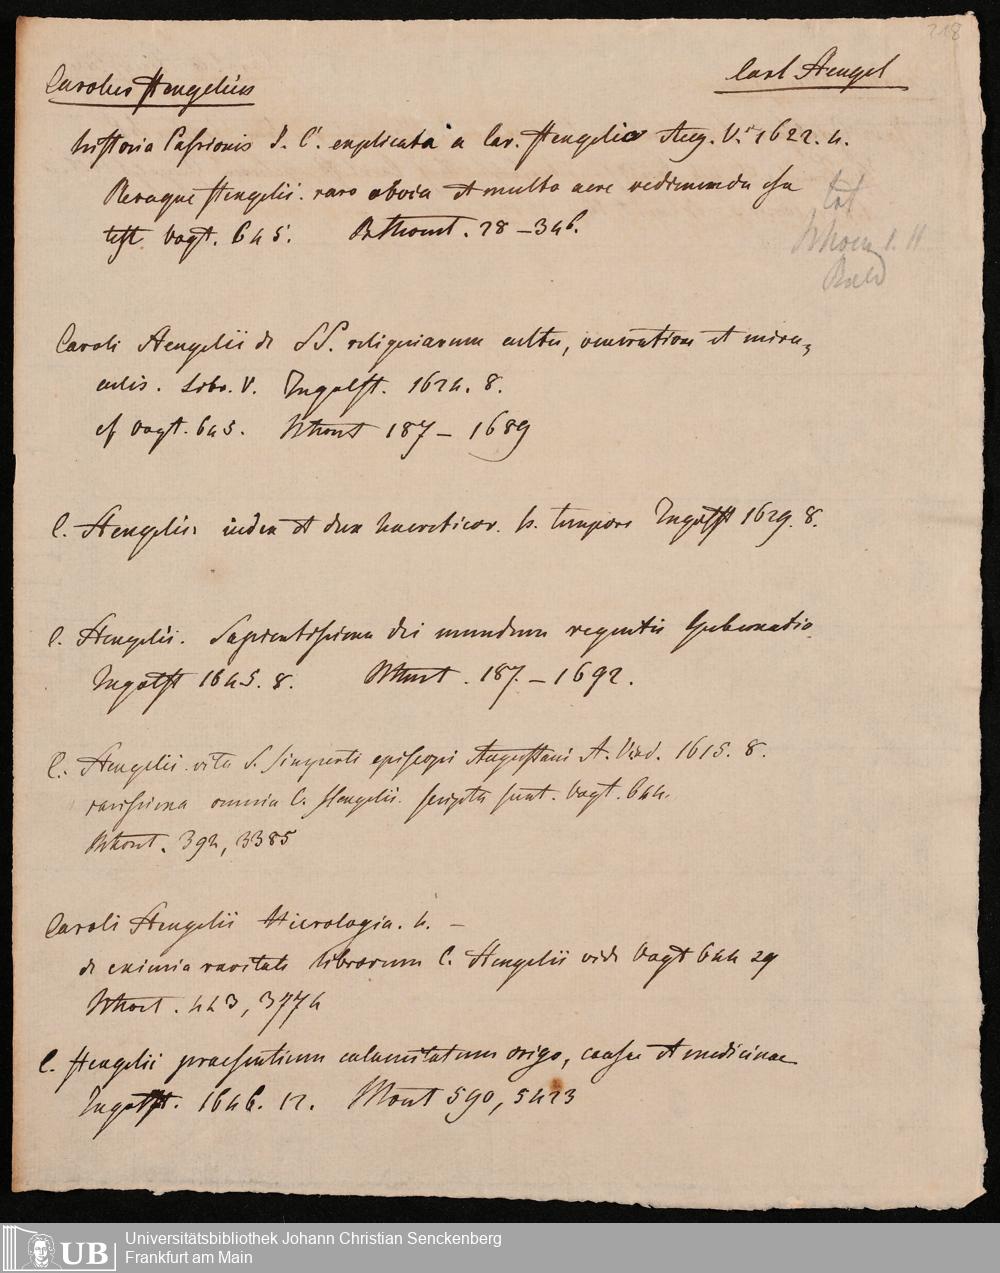 218
Carolus Stengelius
Carl Stengel
historia Passionis J. C. explicata a Car. Stengelio Aug. V. 1622. 4.
Pleraque Stengelii raro obvia et multo aere redimenda esse
test. Vogt. 645. 28 – 346.
Caroli Stengelii de SS. reliquiarum cultu, veneratione et mira-
culis. Libr. V. Ingolst. 1624. 8.
cf Vogt. 645. 187 – 1689
C. Stengelii index et dux haereticor. h. tempore Ingolst 1629. 8.
C. Stengelii. Sapientissima dei mundum regentis Gubernatio
Ingolst 1645. 8. 187. – 1692.
C. Stengelii vita S. Simperti episcopi Augustani A. Vind. 1615. 8.
rarissima omnia C. Stengelii scripta sunt. Vogt. 644.
392, 3385
Caroli Stengelii Hierologia. 4. –
de eximia raritate librorum C. Stengelii vide Vogt 644 sq
443, 3774
C. Stengelii praesentium calamitatum origo, causae et medicinae
Ingolst. 1646. 12. 590, 5423
UB
Universitätsbibliothek Johann Christian Senckenberg
Frankfurt am Main